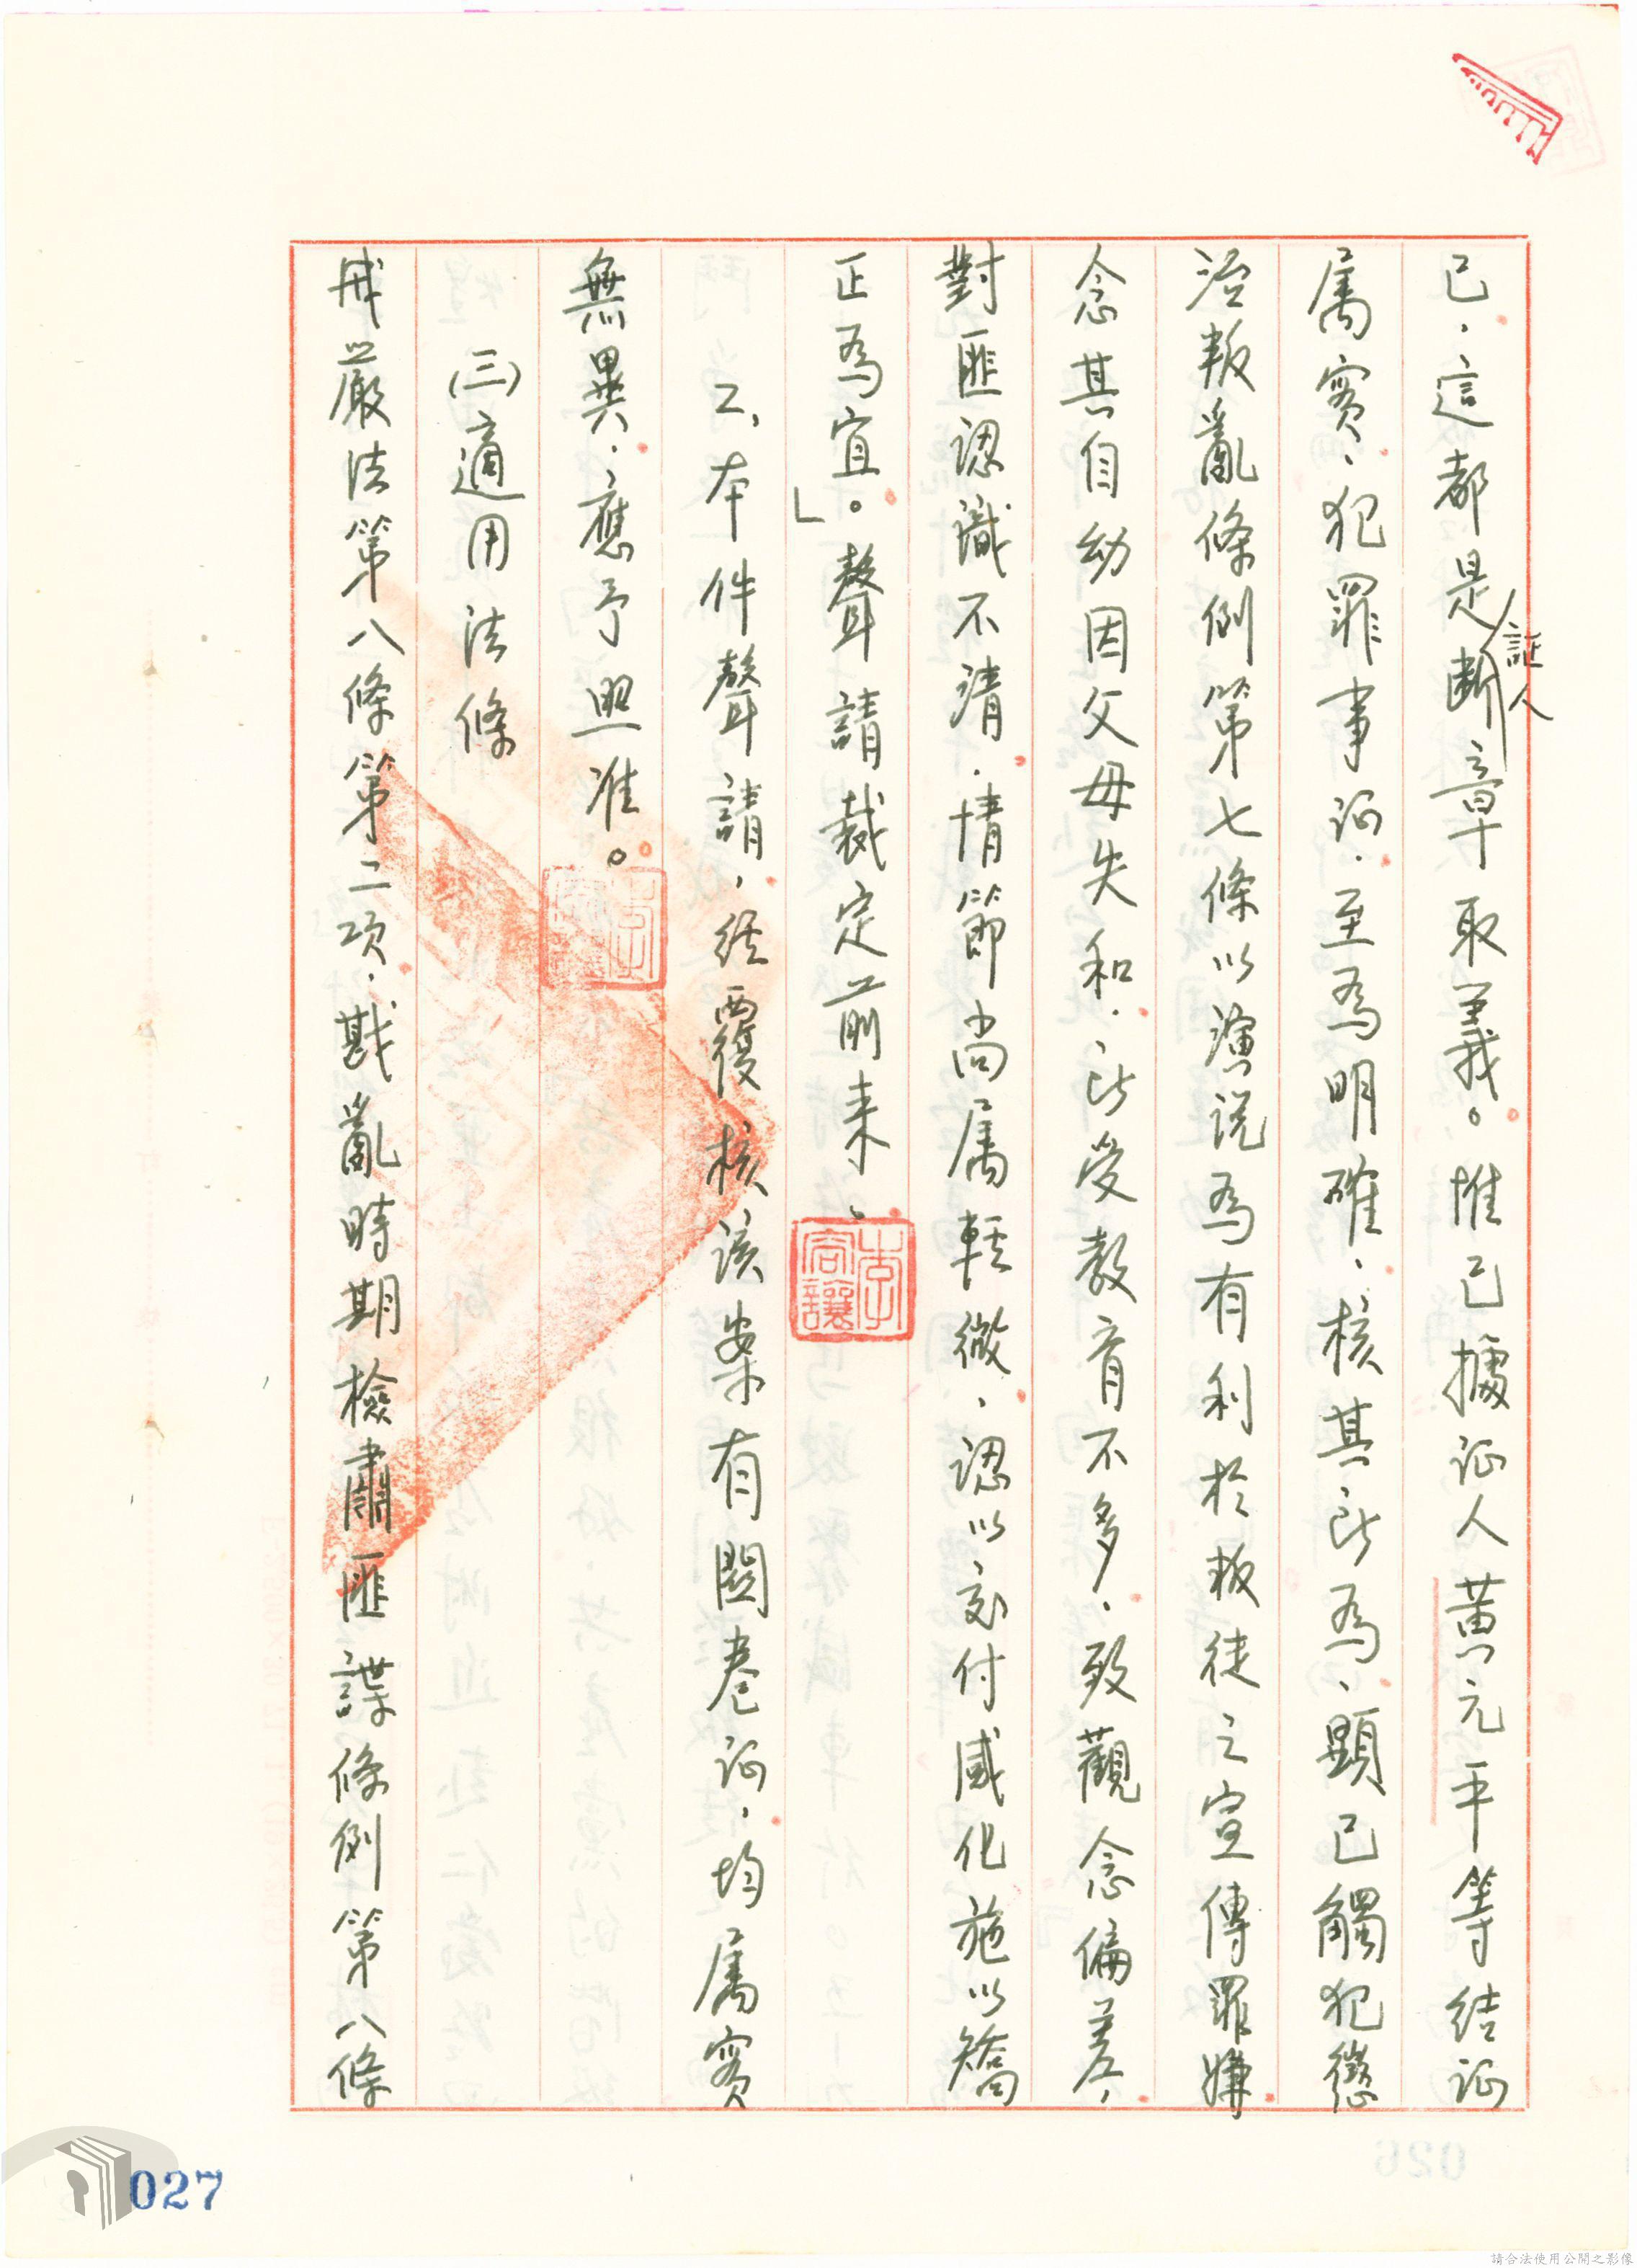 已，這都是證人斷章取義。惟已據证人黄元平等结证
属实，犯罪事证，至為明確，核其所為，顯已觸犯懲
治叛亂條例第七條以演说為有利於叛徒之宣傳罪嫌
念其自幼因父母失和，所受教育不多，致觀念偏差，
對匪認識不清，情節尚属輕微，認以交付感化施以矯
正為宜。」聲請裁定前来。
2、本件聲請，經覆核該案有関卷证，均属实
無異，應予照准。
(三)適用法條
戒嚴法第八條第二项，戡亂時期檢肅匪諜條例第八條
027
請合法使用公開之影像